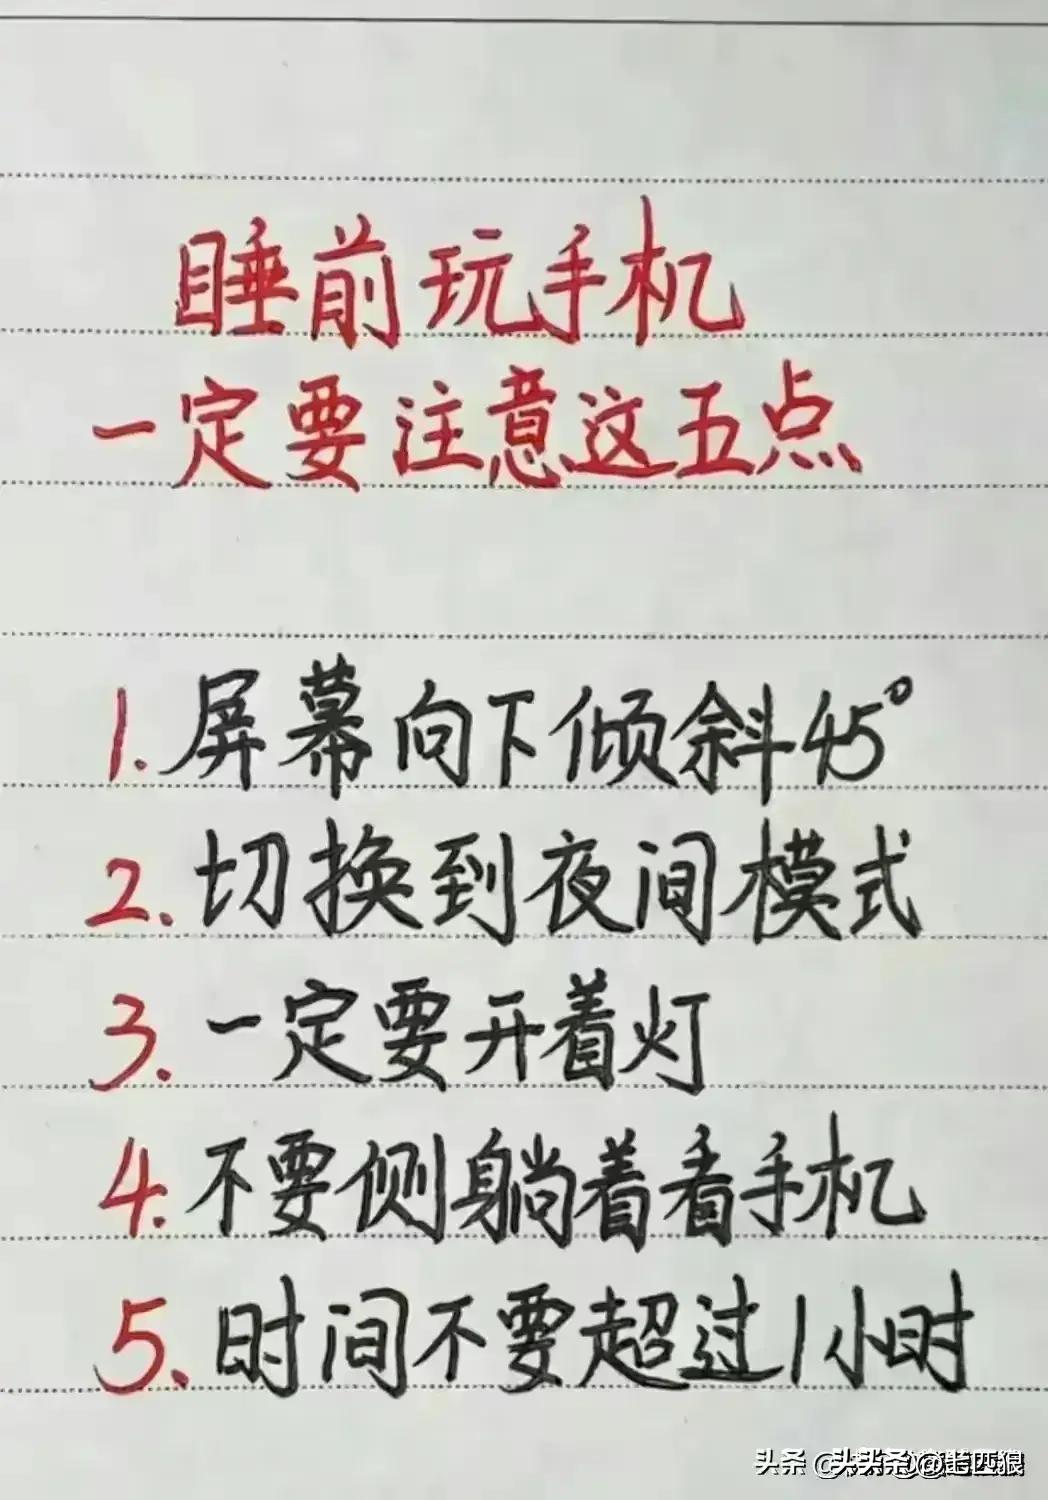 睡前玩手机
一定要注意这五点
1.屏幕向下倾斜45°
2.切换到夜间模式
3.一定要开着灯
4.不要侧躺着看手机
5.时间不要超过1小时
头条 @老匹狼